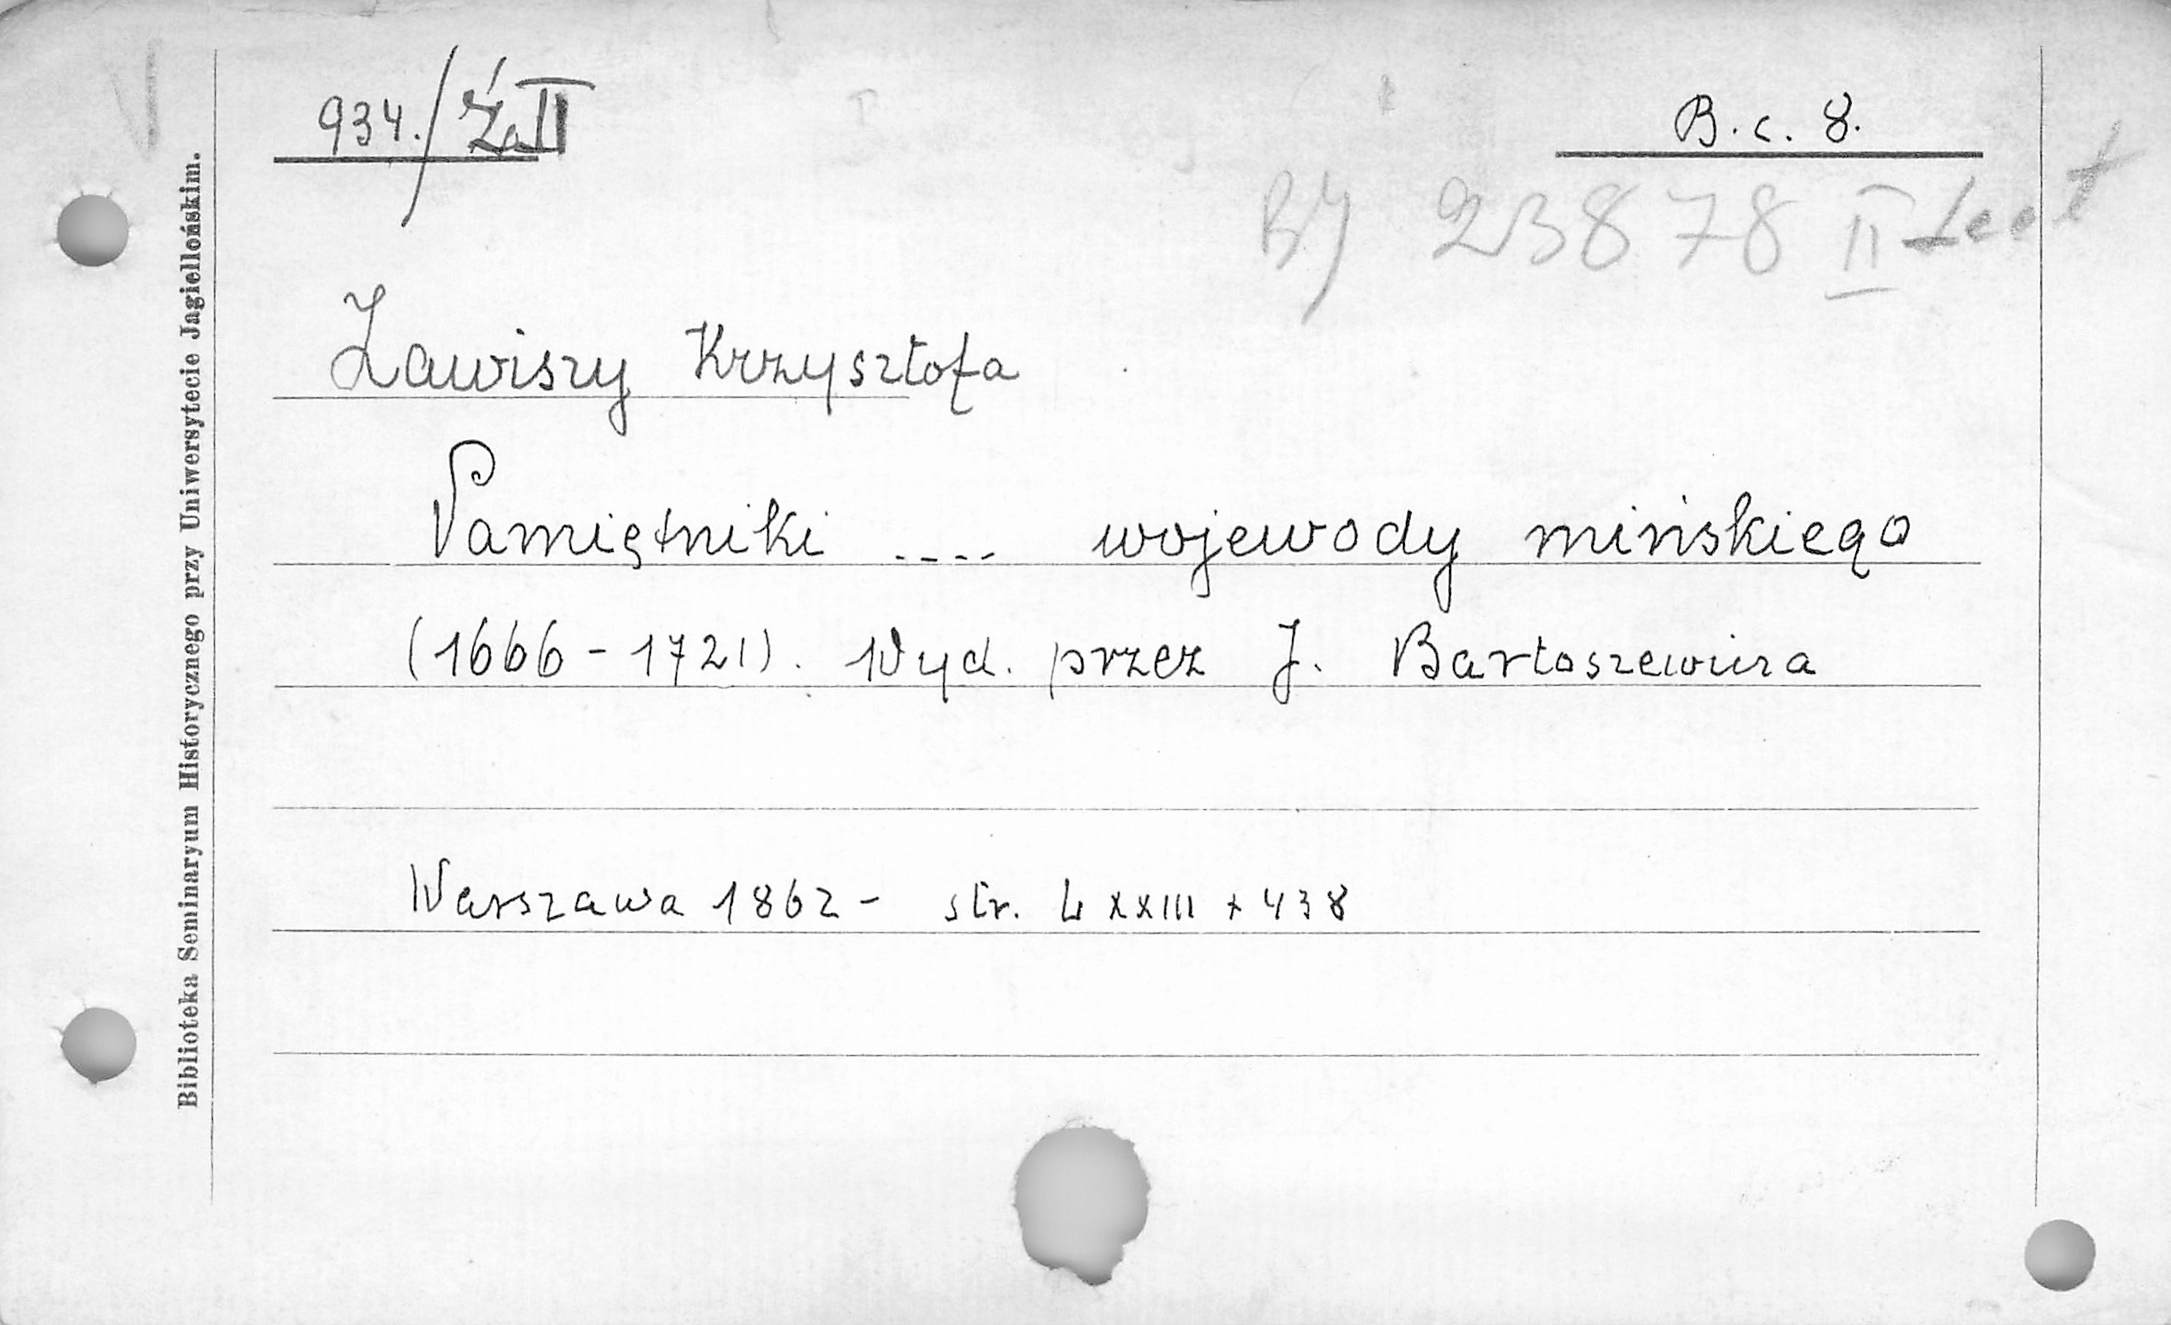 934./Ź.II
B. c. 8.
BJ 23878 II
Zawiszy Krzysztofa
Pamiętniki .... wojewody mińskiego
(1666-1721). Wyd. przez J. Bartoszewicza
Warszawa 1862 - str. LXXIII + 438
Biblioteka Seminaryum Historycznego przy Uniwersytecie Jagiellońskim.